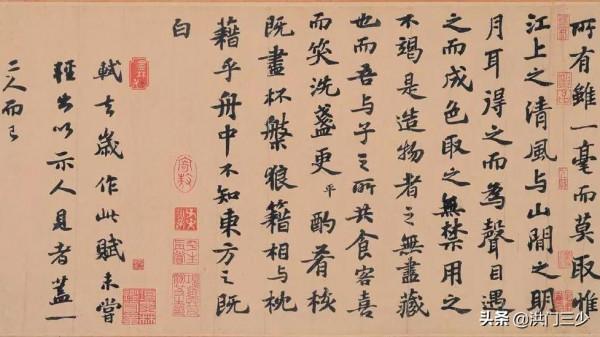 所有雖一毫而莫取惟
江上之清風与山間之明
月耳得之而為聲目遇
之而成色取之無禁用之
不竭是造物者之無盡藏
也而吾与子之所共食客喜
而笑洗盞更平酌肴核
既盡杯槃狼籍相与枕
藉乎舟中不知東方之既
白
軾去歲作此賦未嘗
輕出以示人見者蓋一
二人而已
头条 @洪门三少